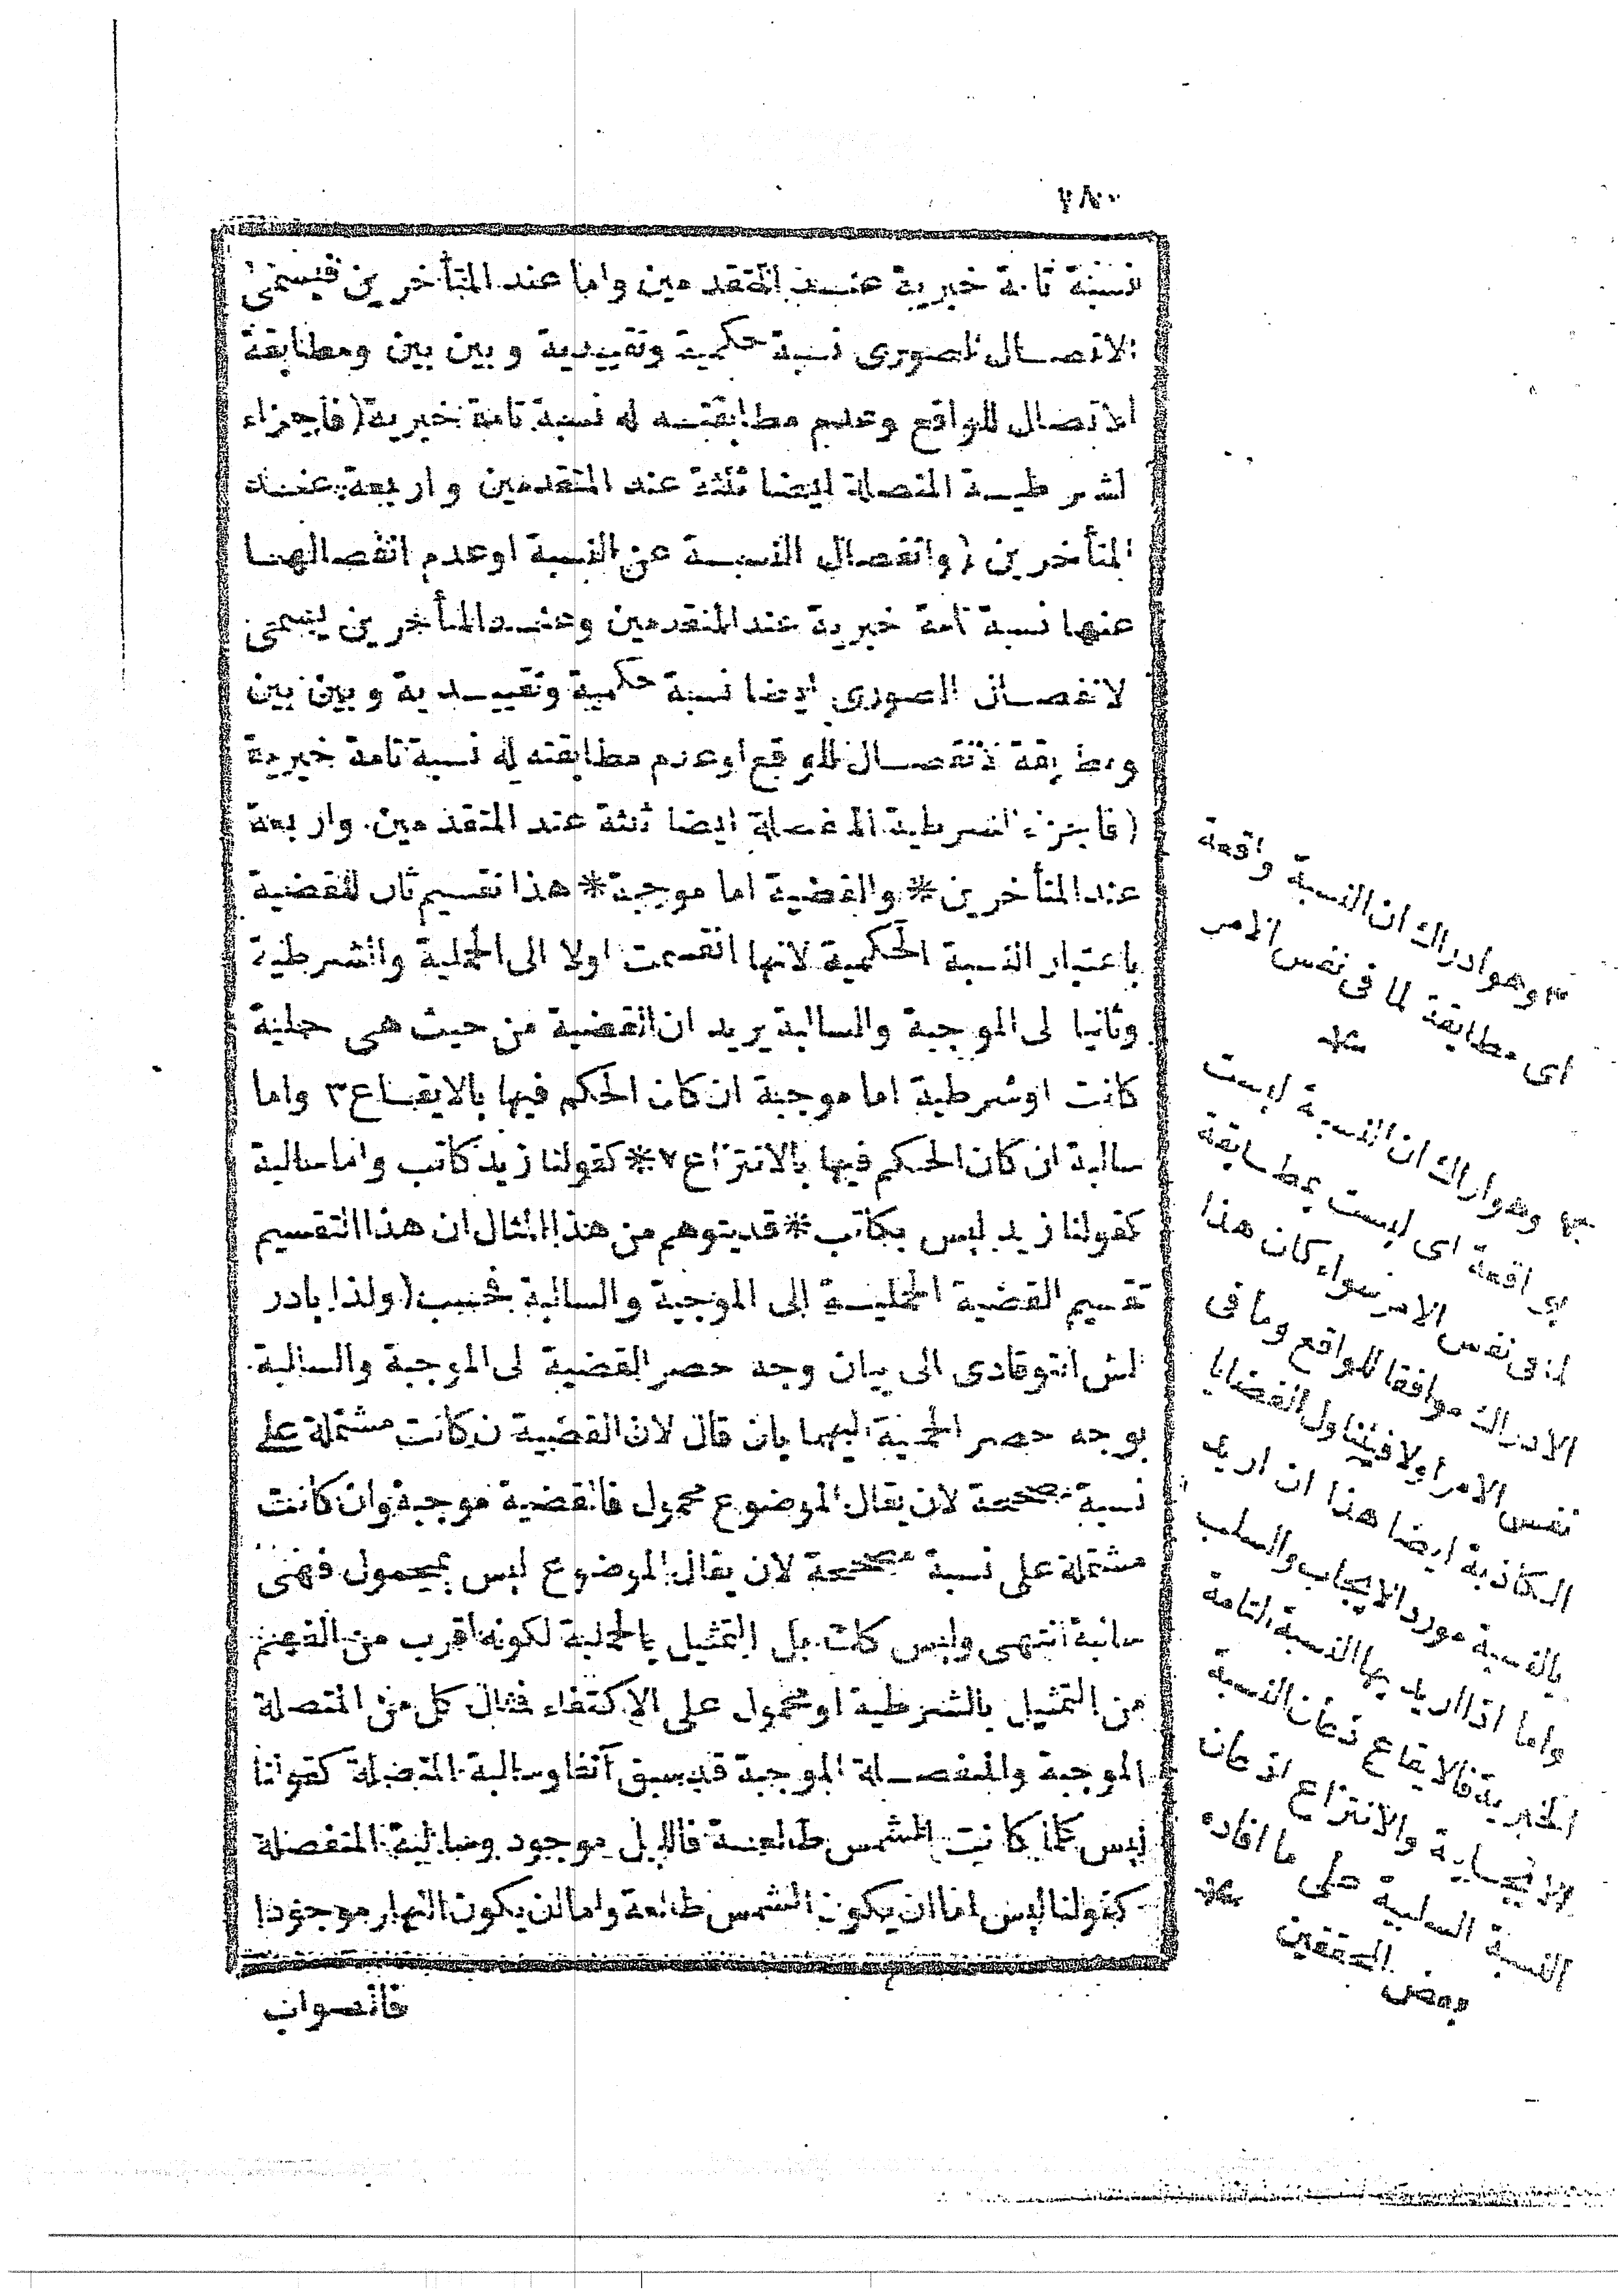 نسبة تامة خبرية عند المتقدمين واما عند المتأخرين فيسمى
الاتصال الصورى نسبة حكمية وتقييدية وبين بين ومطابقة
الاتصال للواقع وعدم مطابقته له نسبة تامة خبرية (فاجزاء
لشرطية المتصلة ايضا ثلثة عند المتقدمين واربعة عند
المتأخرين (وانفصال النسبة عن النسبة اوعدم انفصالها
عنها نسبة تامة خبرية عند المتقدمين وعند المتأخرين يسمى
لانفصال الصورى ايضا نسبة حكمية وتقييدية وبين بين
ومطابقة الانفصال للواقع اوعدم مطابقته له نسبة تامة خبرية
(فاجزاء الشرطية المنفصلة ايضا ثلثة عند المتقدمين واربعة
عند المتأخرين * والقضية اما موجبة * هذا تقسيم ثان للقضية
باعتبار النسبة الحكمية لانها انقسمت اولا الى الحملية والشرطية
وثانيا لى الموجبة والسالبة يريد ان القضية من حيث هى حملية
كانت اوشرطية اما موجبة ان كان الحكم فيها بالايقاع ٣ واما
سالبة ان كان الحكم فيها بالانتزاع ٧ * كقولنا زيد كاتب واما سالبة
كقولنا زيد ليس بكاتب * قديتوهم من هذا المثال ان هذا التقسيم
تقسيم القضية الحملية الى الموجبة والسالبة فحسب (ولذا بادر
لش التوقادى الى بيان وجه حصر القضية لى الموجبة والسالبة
بوجه حصر الحملية اليهما بان قال لان القضية ن كانت مشتملة على
نسبة مصححة لان يقال الموضوع محمول فالقضية موجبة وان كانت
مشتملة على نسبة مصححة لان يقال الموضوع ليس بمحمول فهى
سالبة انتهى وليس كلك بل التمثيل بالحملية لكونه اقرب من الفهم
من التمثيل بالشرطية او محمول على الاكتفاء فمثال كل من المتصلة
الموجبة والمنفصلة الموجبة قد سبق آنفا وسالبة المتصلة كقولنا
ليس كلما كانت الشمس طالعة فالليل موجود وسالبة المنفصلة
كقولنا ليس اما ان يكون الشمس طالعة واما ان يكون النهار موجودا
فالصواب
٣ وهو ادراك ان النسبة واقعة
اى مطابقة لما فى نفس الامر
وهو ادراك ان النسبة ليست
واقعة اى ليست بمطابقة
لما فى نفس الامر سواء كان هذا
الادراك موافقا للواقع وما فى
نفس الامر اولا فيتناول القضايا
الكاذبة ايضا هذا ان اريد
بالنسبة مورد الايجاب والسلب
واما اذا اريد بها النسبة التامة
الخبرية فالايقاع اذعان النسبة
الايجابية والانتزاع اذعان
النسبة السلبية على ما افاده
بعض المحققين